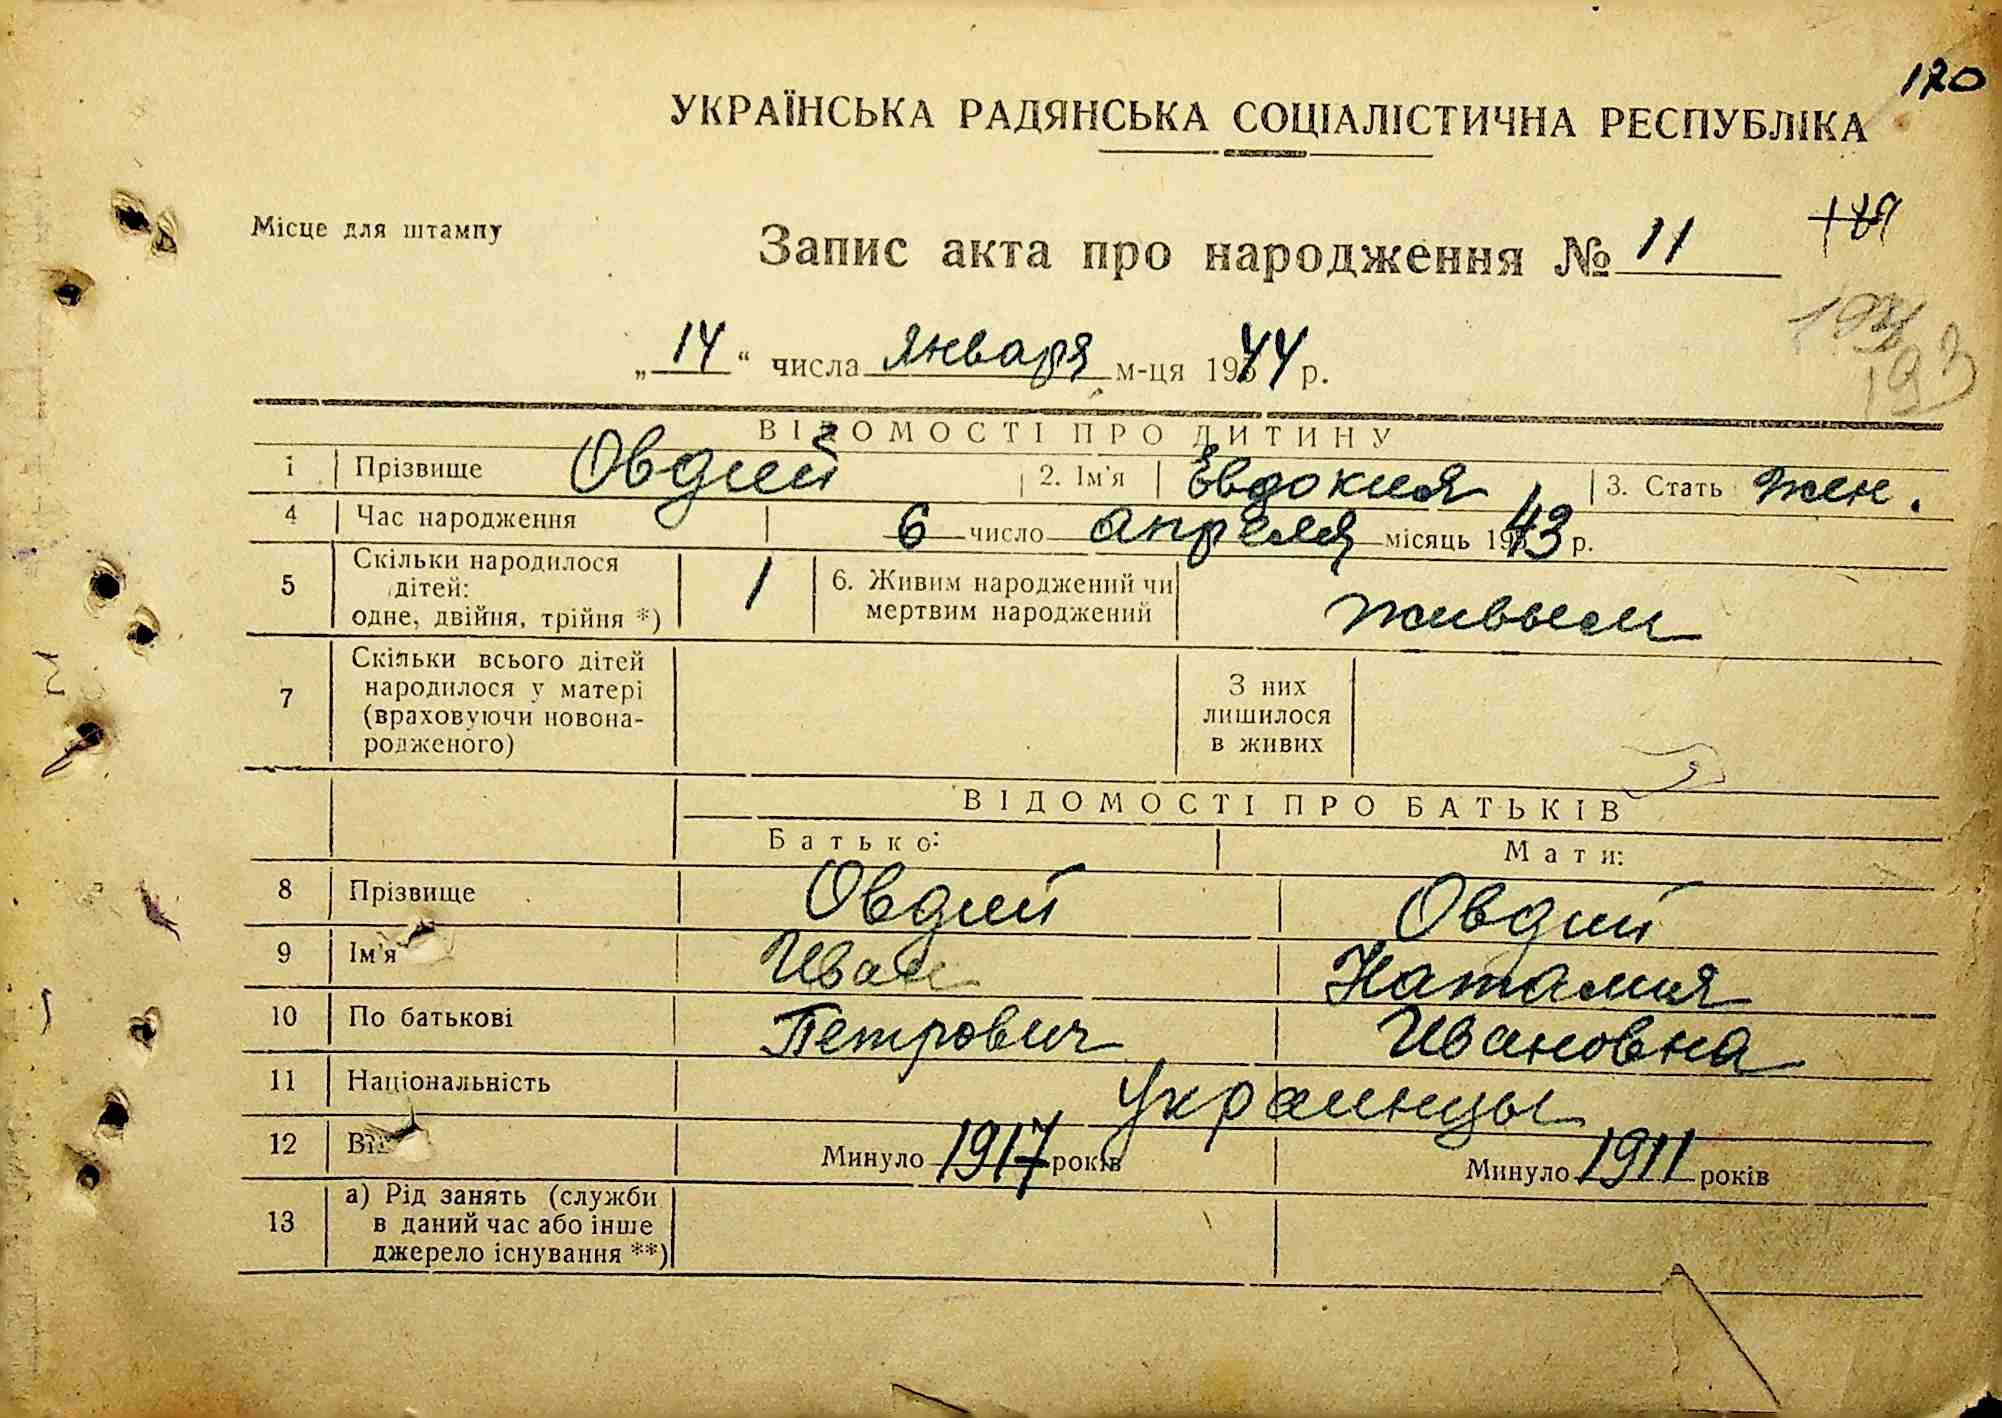 120
УКРАЇНСЬКА РАДЯНСЬКА СОЦІАЛІСТИЧНА РЕСПУБЛІКА
Місце для штампу
Запис акта про народження № 11
„14“ числа января м-ця 1944 р.
ВІДОМОСТІ ПРО ДИТИНУ
1 Прізвище Овдий 2. Ім'я Евдокия 3. Стать жен.
4 Час народження 6 число апреля місяць 1943 р.
5 Скільки народилося дітей: одне, двійня, трійня *) 1 6. Живим народжений чи мертвим народжений живым
7 Скільки всього дітей народилося у матері (враховуючи новона-родженого) З них лишилося в живих
ВІДОМОСТІ ПРО БАТЬКІВ
Батько: Мати:
8 Прізвище Овдий Овдий
9 Ім'я Иван Наталия
10 По батькові Петрович Ивановна
11 Національність украинцы
12 Вік Минуло 1917 років Минуло 1911 років
13 а) Рід занять (служби в даний час або інше джерело існування **)